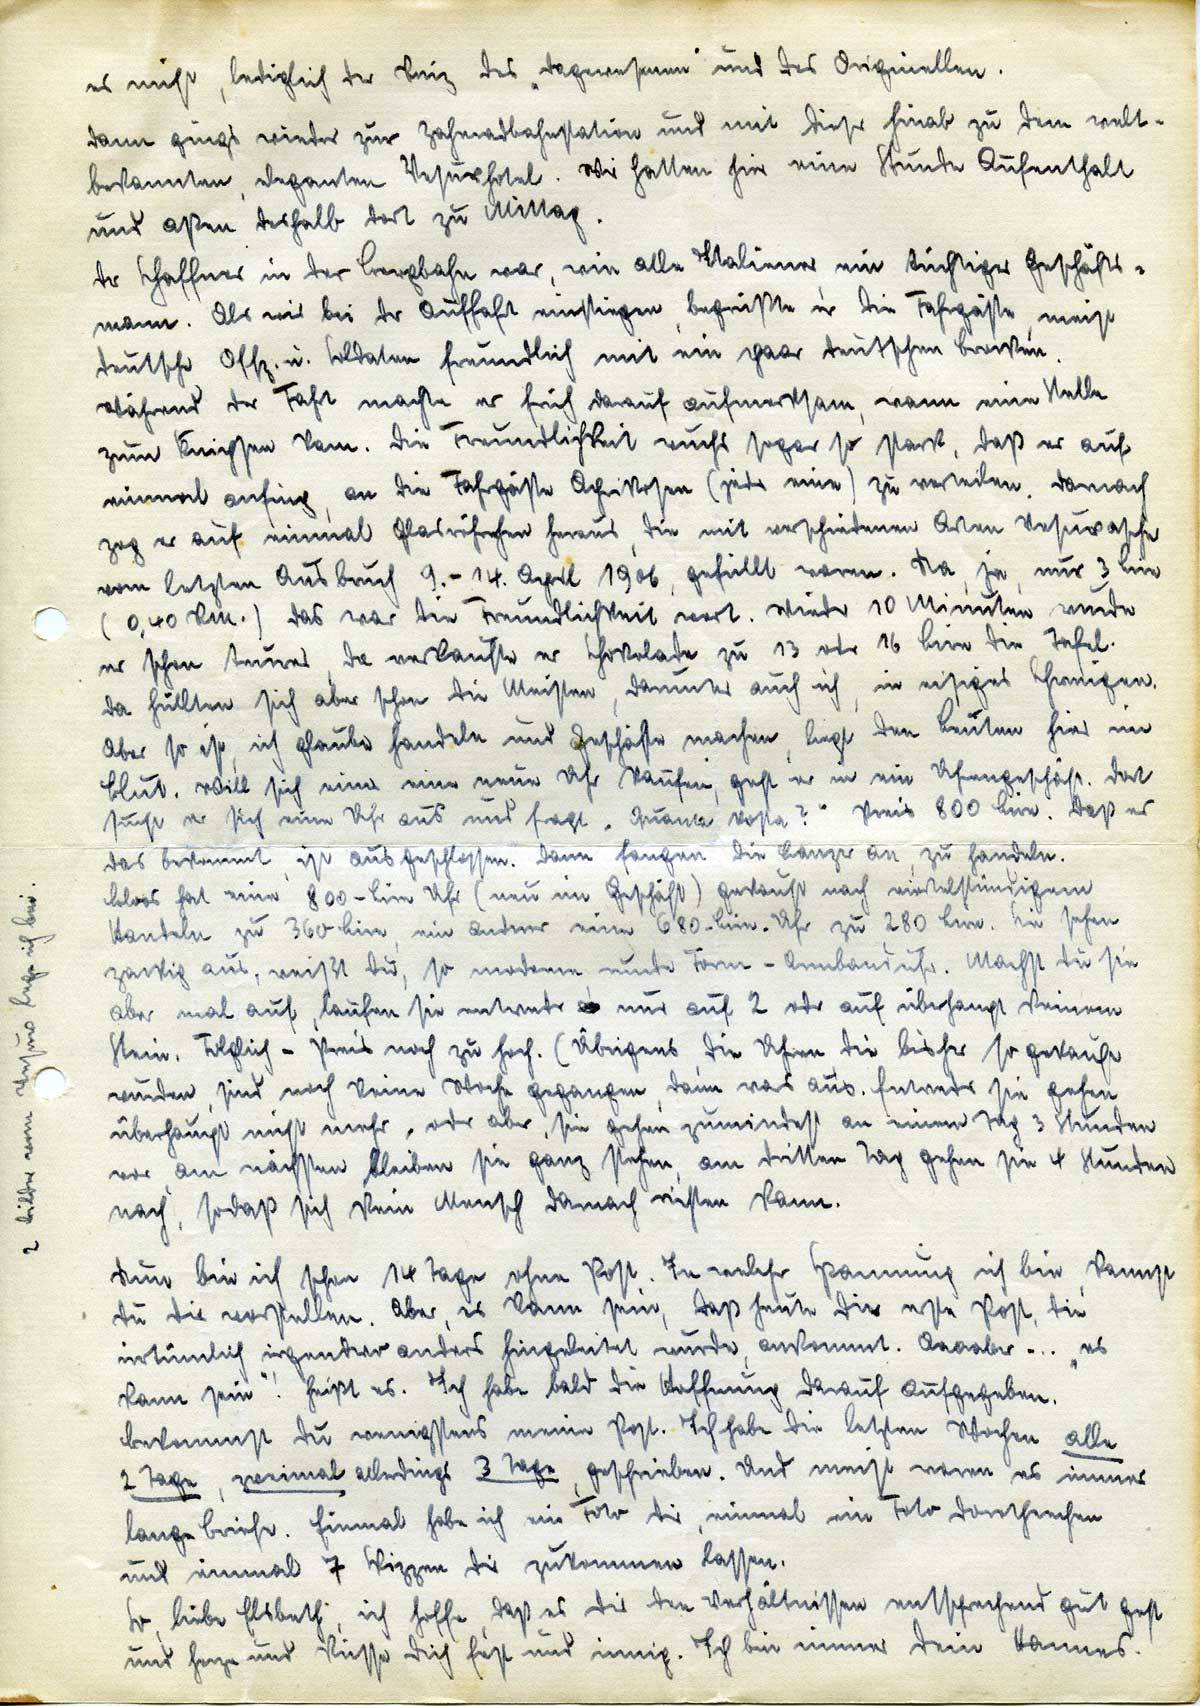 es nicht, lediglich der Reiz des „dagewesenen" und des Originellen.
Dann gings wieder zur Zahnradbahnstation und mit dieser hinab zu dem welt-
bekannten, eleganten Vesuvhotel. Wir hatten hier eine Stunde Aufenthalt
und aßen deshalb dort zu Mittag.
Der Schaffner in der Bergbahn war, wie alle Italiener ein tüchtiger Geschäfts-
mann. Als wir bei der Auffahrt einstiegen, begrüßte er die Fahrgäste, meist
deutsche Offz. u. Soldaten freundlich mit ein paar deutschen Brocken.
Während der Fahrt machte er frech darauf aufmerksam, wann eine Stelle
zum Knipsen kam. Die Freundlichkeit wuchs sogar so stark, daß er auf
einmal anfing, an die Fahrgäste Aprikosen (jeder eine) zu verteilen. Darnach
zog er auf einmal Glasröhrchen heraus, die mit verschiedenen Arten Vesuvasche
vom letzten Ausbruch 9.-14. April 1906, gefüllt waren. Na, ja, nur 3 Lire
(0,40 Rm.) das war die Freundlichkeit wert. Wieder 10 Minuten wurde
er schon teurer, da verkaufte er Schokolade zu 13 oder 16 Lire die Tafel.
Da hüllten sich aber schon die Meisten, darunter auch ich, in eisiges Schweigen.
Aber so ist, ich glaube handeln und Geschäfte machen, liegt den Leuten hier im
Blut. Will sich einer eine neue Uhr kaufen, geht er in ein Uhrengeschäft. Dort
sucht er sich eine Uhr aus und fragt „Quanta costa?" Preis 800 Lire. Daß er
das bekommt, ist ausgeschlossen. Dann fangen die Lanzer an, zu handeln.
hat eine 800-Lire Uhr (neu im Geschäft) gekauft nach viertelstündigem
Handeln zu 360 Lire, ein anderer eine 680-Lire-Uhr zu 280 Lire. Sie sehen
zackig aus, weißt Du, so moderne runde Form - Armbanduhr. Machst Du sie
aber mal auf, laufen sie entweder nur auf 2 oder auf überhaupt keinem
Stein. Folglich - Preis noch zu hoch. (Übrigens die Uhren die bisher so gekauft
wurden, sind noch keine Woche gegangen, dann wars aus. Entweder sie gehen
überhaupt nicht mehr, oder aber, sie gehen zumindest an einem Tag 3 Stunden
vor, am nächsten bleiben sie ganz stehen, am dritten Tag gehen sie 4 Stunden
nach, sodaß sich kein Mensch danach richten kann.
Nun bin ich schon 14 Tage ohne Post. In welcher Spannung ich bin, kannst
Du Dir vorstellen. Aber, es kann sein, daß heute die erste Post, die
irrtümlich irgendwo anders hingeleitet wurde, ankommt. Aaaaber ... „es
kann sein"! heißt es. Ich habe bald die Hoffnung darauf aufgegeben.
Bekommst Du wenigstens meine Post. Ich habe die letzten Wochen alle
2 Tage, zweimal allerdings 3 Tage, geschrieben. Und meist waren es immer
lange Briefe. Einmal habe ich ein Foto Dir, einmal ein Foto Dorothechen
und einmal 7 Skizzen Dir zukommen lassen.
So, liebe Elsbeth, ich hoffe, daß es Dir den Verhältnissen entsprechend gut geht
und herze und küsse Dich fest und innig. Ich bin immer Dein Hannes.
2 Bilder vom Vesuv lege ich bei.